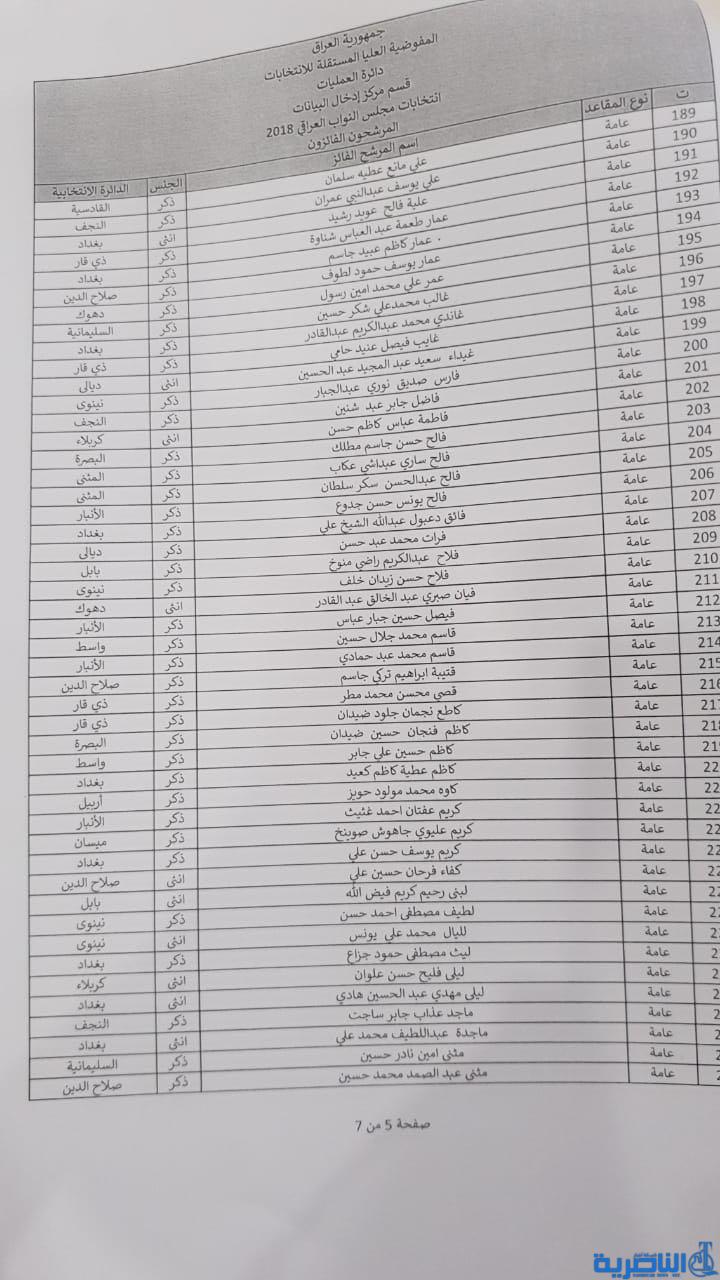 جمهورية العراق
المفوضية العليا المستقلة للانتخابات
دائرة العمليات
قسم مركز إدخال البيانات
انتخابات مجلس النواب العراقي 2018
المرشحون الفائزون
ت نوع المقاعد اسم المرشح الفائز الجنس الدائرة الإنتخابية
189 عامة علي مانع عطيه سلمان ذكر القادسية
190 عامة علي يوسف عبدالنبي عمران ذكر النجف
191 عامة علية فالح عويد رشيد انثى بغداد
192 عامة عمار طعمة عبد العباس شناوة ذكر ذي قار
193 عامة عمار كاظم عبيد جاسم ذكر بغداد
194 عامة عمار يوسف حمود لطوف ذكر صلاح الدين
195 عامة عمر علي محمد امين رسول ذكر دهوك
196 عامة غالب محمدعلي شكر حسين ذكر السليمانية
197 عامة غاندي محمد عبدالكريم عبدالقادر ذكر بغداد
198 عامة غايب فيصل عنيد حامي ذكر ذي قار
199 عامة غيداء سعيد عبد المجيد عبد الحسين انثى ديالى
200 عامة فارس صديق نوري عبدالجبار ذكر نينوى
201 عامة فاضل جابر عبد شنين ذكر النجف
202 عامة فاطمة عباس كاظم حسن انثى كربلاء
203 عامة فالح حسن جاسم مطلك ذكر البصرة
204 عامة فالح ساري عبداشي عكاب ذكر المثنى
205 عامة فالح عبدالحسن سكر سلطان ذكر المثنى
206 عامة فالح يونس حسن جدوع ذكر الأنبار
207 عامة فائق دعبول عبدالله الشيخ علي ذكر بغداد
208 عامة فرات محمد عبد حسن ذكر ديالى
209 عامة فلاح عبدالكريم راضي منوخ ذكر بابل
210 عامة فلاح حسن زيدان خلف ذكر نينوى
211 عامة فيان صبري عبد الخالق عبد القادر انثى دهوك
212 عامة فيصل حسين جبار عباس ذكر الأنبار
213 عامة قاسم محمد جلال حسين ذكر واسط
214 عامة قاسم محمد عبد حمادي ذكر الأنبار
215 عامة قتيبة ابراهيم تركي جاسم ذكر صلاح الدين
216 عامة قصي محسن محمد مطر ذكر ذي قار
217 عامة كاطع نجمان جلود ضيدان ذكر ذي قار
218 عامة كاظم فنجان حسين ضيدان ذكر البصرة
219 عامة كاظم حسين علي جابر ذكر واسط
22 عامة كاظم عطية كاظم كعيد ذكر بغداد
22 عامة كاوه محمد مولود حويز ذكر أربيل
22 عامة كريم عفتان احمد غثيث ذكر الأنبار
22 عامة كريم عليوي جاهوش صوينخ ذكر ميسان
22 عامة كريم يوسف حسن علي ذكر بغداد
22 عامة كفاء فرحان حسين علي انثى صلاح الدين
22 عامة لبنى رحيم كريم فيض الله انثى بابل
22 عامة لطيف مصطفى احمد حسن ذكر نينوى
2 عامة لليال محمد علي يونس انثى نينوى
2 عامة ليث مصطفى حمود جزاع ذكر بغداد
2 عامة ليلى فليح حسن علوان انثى كربلاء
2 عامة ليلى مهدي عبد الحسين هادي انثى بغداد
2 عامة ماجد عذاب جابر ساجت ذكر النجف
2 عامة ماجدة عبداللطيف محمد علي انثى بغداد
2 عامة مثنى امين نادر حسين ذكر السليمانية
2 عامة مثنى عبد الصمد محمد حسين ذكر صلاح الدين
صفحة 5 من 7
الناصرية